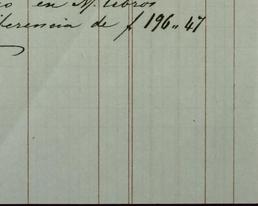 en N. Libros
iferencia de f 196,, 47